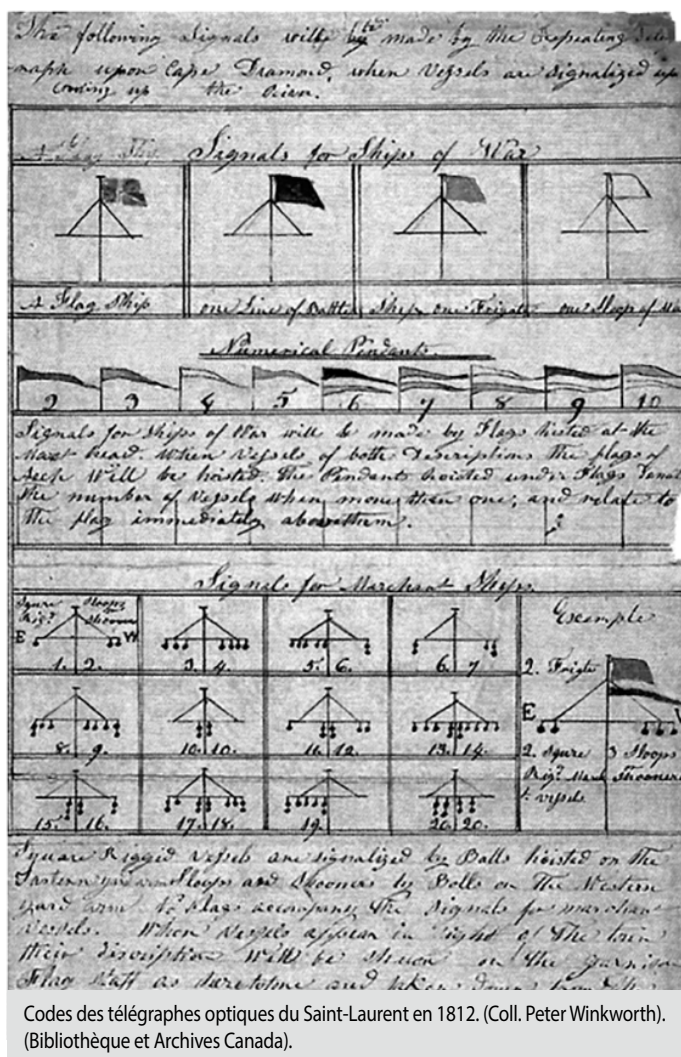 The following Signals will be made by the Repeating Tele
graph upon Cape Diamond, when Vessels are signalized up
coming up the River.
Signals for Ships of War
A Flag Ship one Line of Battle Ship one Frigate one Sloop of Wa
Numerical Pendants.
2 3 4 5 6 7 8 9 10
Signals for Ships of War will be made by Flags hoisted at the
Mast head. When Vessels of both Descriptions the flags of
Each Will be hoisted. The Pendants hoisted under Flags
the number of Vessels when more than one, and relate to
the flag immediately above them.
Signals for Merchant Ships.
Squre Rigd Sloops Example
E W
1. 2. 3. 4. 5. 6. 6. 7 2. Frigts
E
8. 9. 10. 10. 11. 12. 13. 14. 2. Squre 3 Sloops
Rigd March
15. 16. 17. 18. 19. 20. 20. vessels
Square Riggid Vessels are signalized by Balls hoisted on the
Eastern yard arm Sloops and Skooners by Balls on the Western
yard arm Flags accompany the Signals for marchant
Vessels. When Vessels appear in Sight of the town
their discription Will be shewn on the Garrison
Flag Staff as and taken down from
Codes des télégraphes optiques du Saint-Laurent en 1812. (Coll. Peter Winkworth).
(Bibliothèque et Archives Canada).